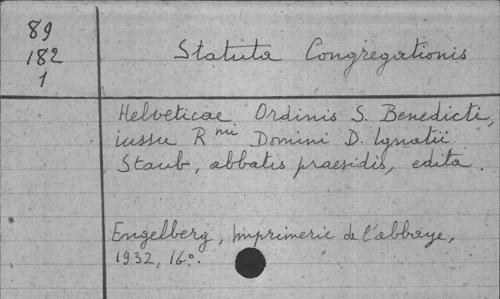 89
182
1
Statuta Congregationis
Helveticae Ordinis S. Benedicti,
iussu Rmi Domini D. Ignatii
Staub, abbatis praesidis, edita.
Engelberg, Imprimerie de l'abbaye,
1932, 16°.